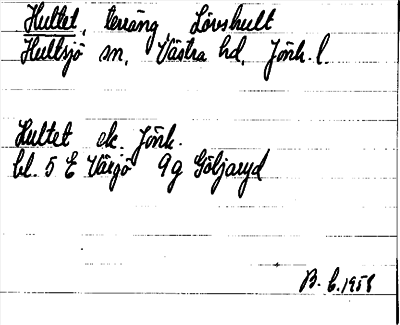 Hultet, terräng Lövshult
Hultsjö sn, Västra hd, Jönk. l.
Hultet ek. Jönk.
bl. 5 E Värjö 9g Göljaryd
B. 6.1958